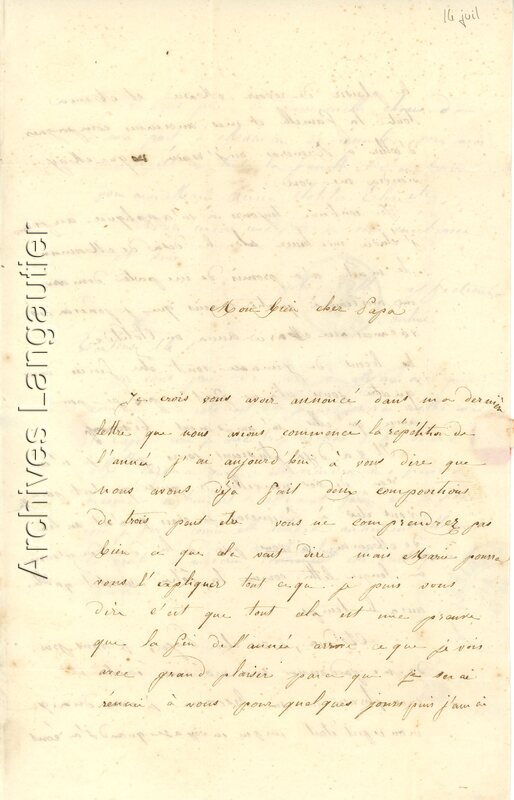 14 juil
Mon bien cher Papa
Je crois vous avoir annoncé dans ma dernière
lettre que nous avions commencé la répétition de
l'année j'ai aujourd'hui à vous dire que
nous avons déjà fait deux compositions
de trois peut etre vous ne comprendrez pas
bien ce que cela veut dire mais Marie pourra
vous l'expliquer tout ce que je puis vous
dire c'est que tout cela est une preuve
que la fin de l'année arrive ce que je vois
avec grand plaisir parce que je serai
réunie à vous pour quelques jours puis j'aurai
Archives Langautier